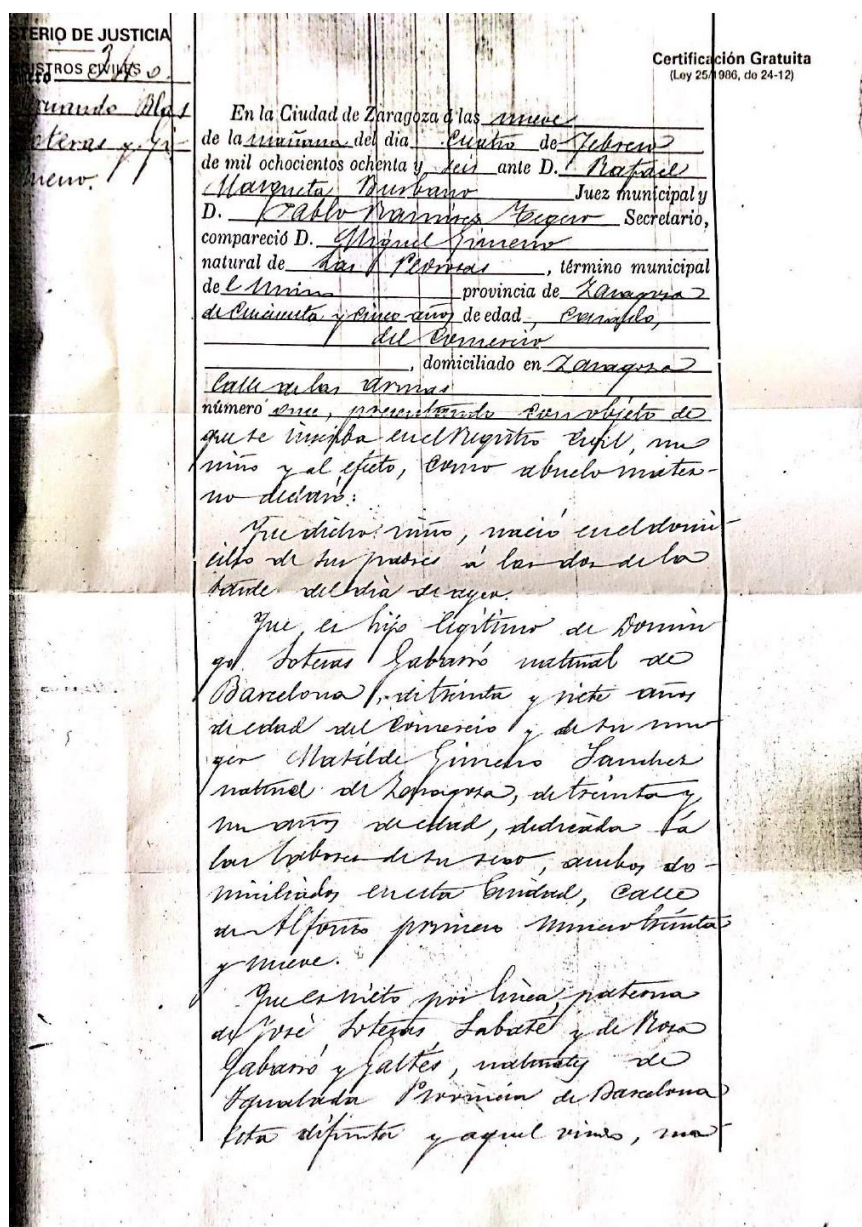 TERIO DE JUSTICIA
STROS CIVILES
Certificación Gratuita
(Ley 25/1986, de 24-12)
Blas
y Gi
meno.
En la Ciudad de Zaragoza á las nueve
de la mañana del dia cuatro de Febrero
de mil ochocientos ochenta y seis ante D. Rafael
Marqueta Burbano Juez municipal y
D. Pablo Ramirez Secretario,
compareció D. Miguel Gimeno
natural de Las Pedrosas, término municipal
de provincia de Zaragoza
de cincuenta y cinco años de edad, casado,
del Comercio
, domiciliado en Zaragoza
Calle de las Armas
número once, presentando con objeto de
que se inscriba en el Registro Civil, un
niño y al efecto, como abuelo mater-
no declaró:
Que dicho niño, nació en el domi-
cilio de sus padres á las dos de la
tarde del dia de ayer.
Que es hijo legitimo de Domin
go Soteras Gabarró natural de
Barcelona, de treinta y siete años
de edad del Comercio y de su mu
ger Matilde Gimeno Sanchez
natural de Zaragoza, de treinta y
un años de edad, dedicada á
las labores de su sexo, ambos do-
miciliados en esta Ciudad, Calle
de Alfonso primero número treinta
y nueve.
Que es nieto por linea paterna
de José Soteras Sabaté y de Rosa
Gabarró y Galtés, naturales de
Igualada Provincia de Barcelona
esta difunta y aquel